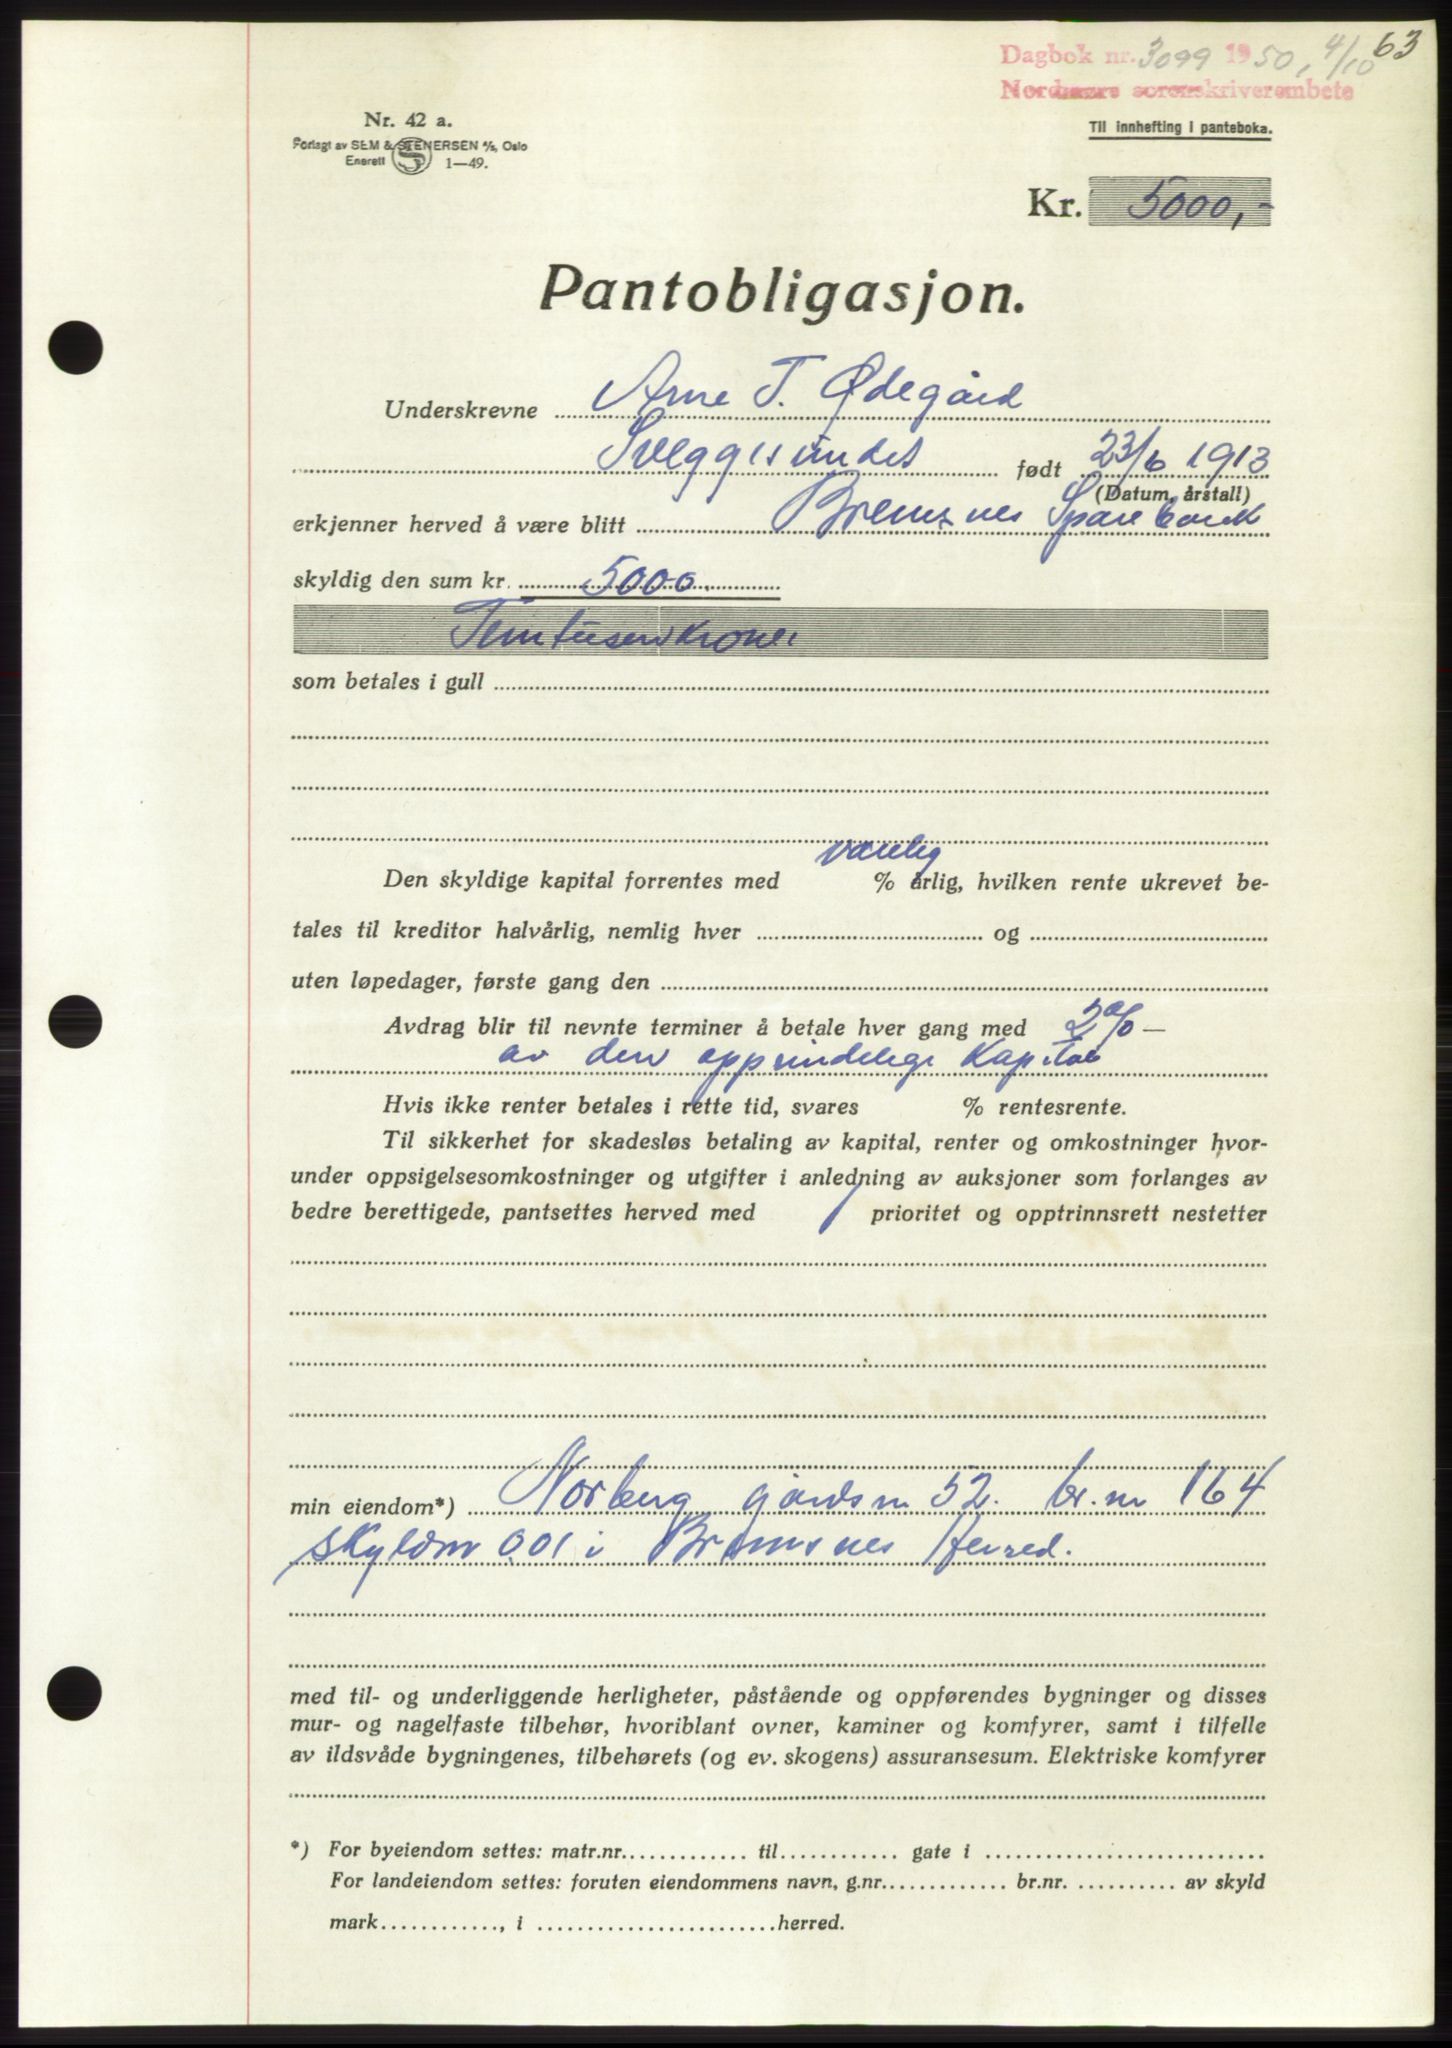 63
Dagbok nr. 3099 1950, 4/10
Nordmøre sorenskriverembete
Nr. 42 a.
Til innhefting i panteboka.
Forlagt av SEM & STENERSEN A/S, Oslo
Enerett S 1—49.
Kr. 5000,-
Pantobligasjon.
Underskrevne Arne T. Ødegård
Sveggesundet født 23/6 1913
(Datum, årstall)
erkjenner herved å være blitt Bremsnes Sparebank
skyldig den sum kr. 5000.
Femtusenkroner
som betales i gull
vanlig
Den skyldige kapital forrentes med % årlig, hvilken rente ukrevet be-
tales til kreditor halvårlig, nemlig hver og
uten løpedager, første gang den
Avdrag blir til nevnte terminer å betale hver gang med 2% —
av den opprindelige Kapital
Hvis ikke renter betales i rette tid, svares % rentesrente.
Til sikkerhet for skadesløs betaling av kapital, renter og omkostninger hvor-
under oppsigelsesomkostninger og utgifter i anledning av auksjoner som forlanges av
bedre berettigede, pantsettes herved med 1 prioritet og opptrinnsrett nestetter
min eiendom*) Norberg gårdsnr 52. br.nr 164
skyldm 0.01 i Bremsnes Herred.
med til- og underliggende herligheter, påstående og oppførendes bygninger og disses
mur- og nagelfaste tilbehør, hvoriblant ovner, kaminer og komfyrer, samt i tilfelle
av ildsvåde bygningenes, tilbehørets (og ev. skogens) assuransesum. Elektriske komfyrer
*) For byeiendom settes: matr.nr. til gate i
For landeiendom settes: foruten eiendommens navn, g.nr. br.nr. av skyld
mark , i herred.